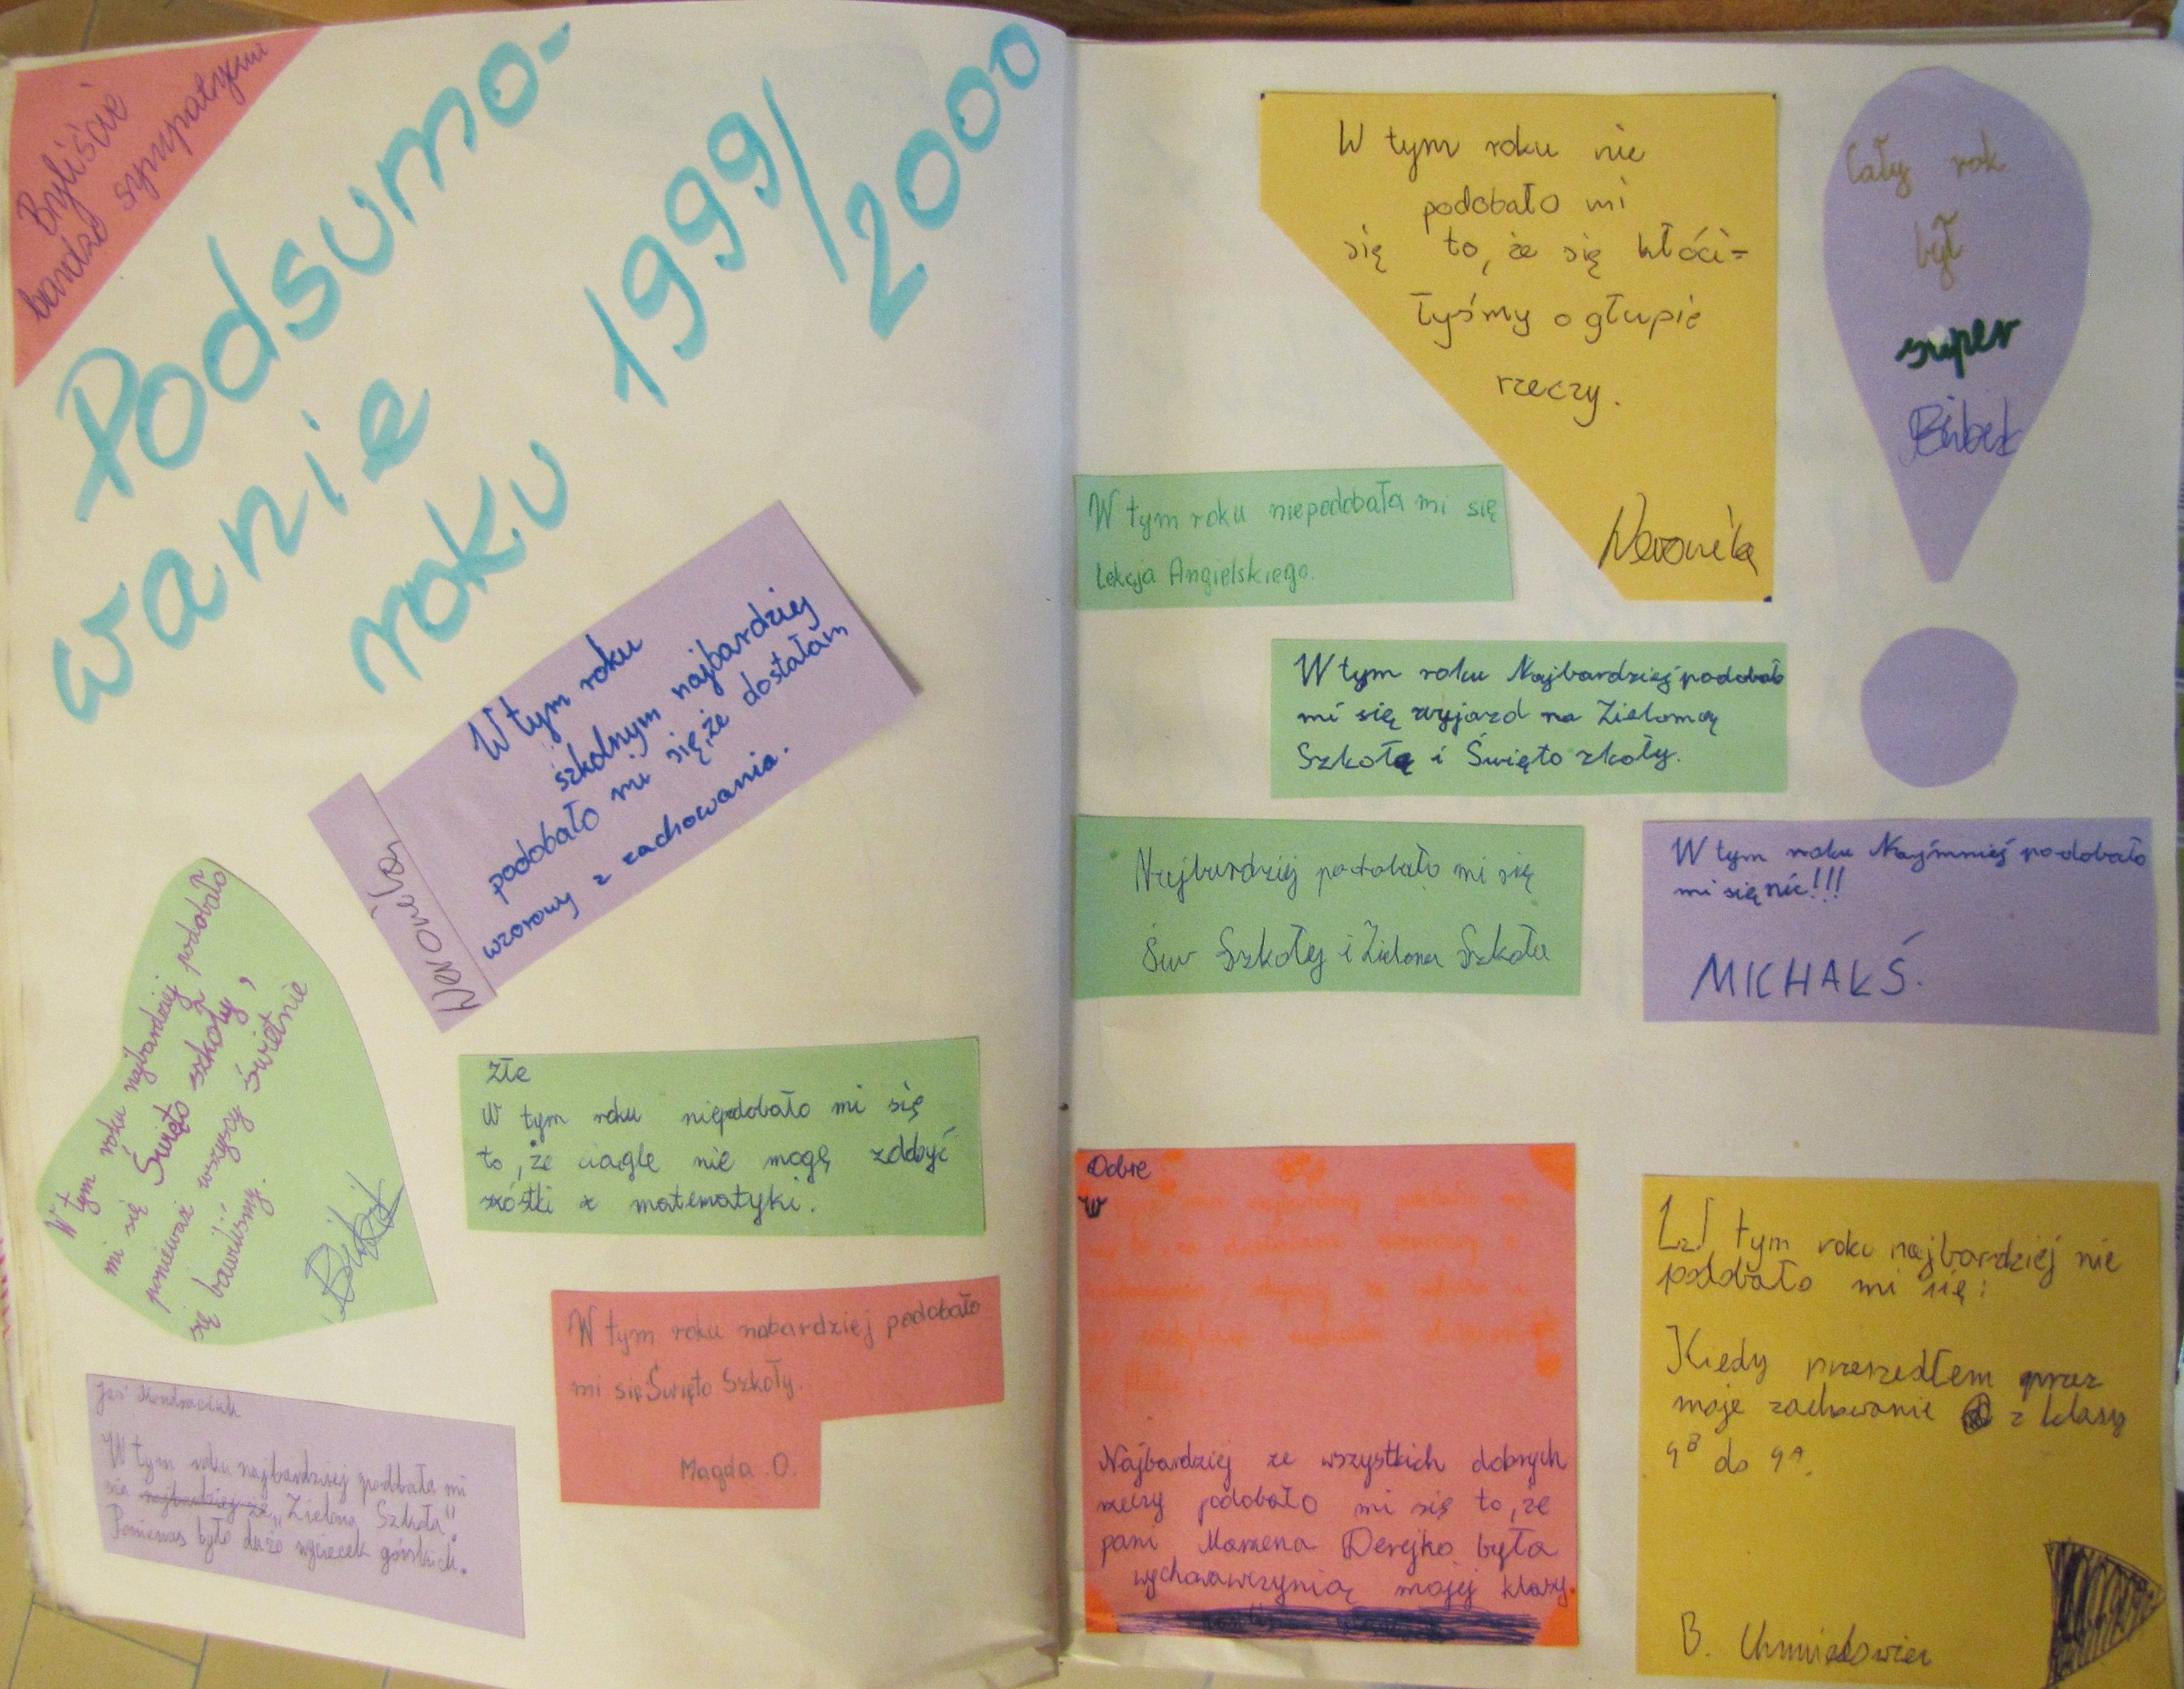 Byliście
bardzo sympatyczni
Podsumo-
wanie
roku 1999/
2000
W tym roku
szkolnym najbardziej
podobało mi się, że dostałam
wzorowy z zachowania.
Weronika
W tym roku najbardziej podobało
mi się Święto szkoły,
ponieważ wszyscy świetnie
się bawiliśmy.
Źle
W tym roku niepodobało mi się
to, że ciągle nie mogę zdobyć
szóstki z matematyki.
W tym roku nabardziej podobało
mi się Święto Szkoły.
Magda O.
Jaś
W tym roku najbardziej podobała mi
się najbardziej że „Zielona Szkoła".
Ponieważ było dużo wycieczek górskich.
W tym roku nie
podobało mi
się to, że się kłóci=
łyśmy o głupie
rzeczy.
Weronika
Cały rok
był
super
W tym roku niepodobała mi się
lekcja Angielskiego.
W tym roku Najbardziej podobało
mi się wyjazd na Zieloną
Szkołę i Święto zkoły.
Najbardziej podobało mi się
Św Szkołej i Zielona Szkoła
W tym roku Najmniej podobało
mi się nic!!!
MICHAŁ Ś.
Dobre
W
Najbardziej ze wszystkich dobrych
rzeczy podobało mi się to, że
pani Marzena Derejko była
wychowawczynią mojej klasy.
W tym roku najbardziej nie
podobało mi się:
Kiedy przeszedłem przez
moje zachowanie z klasy
4B do 4A.
B.